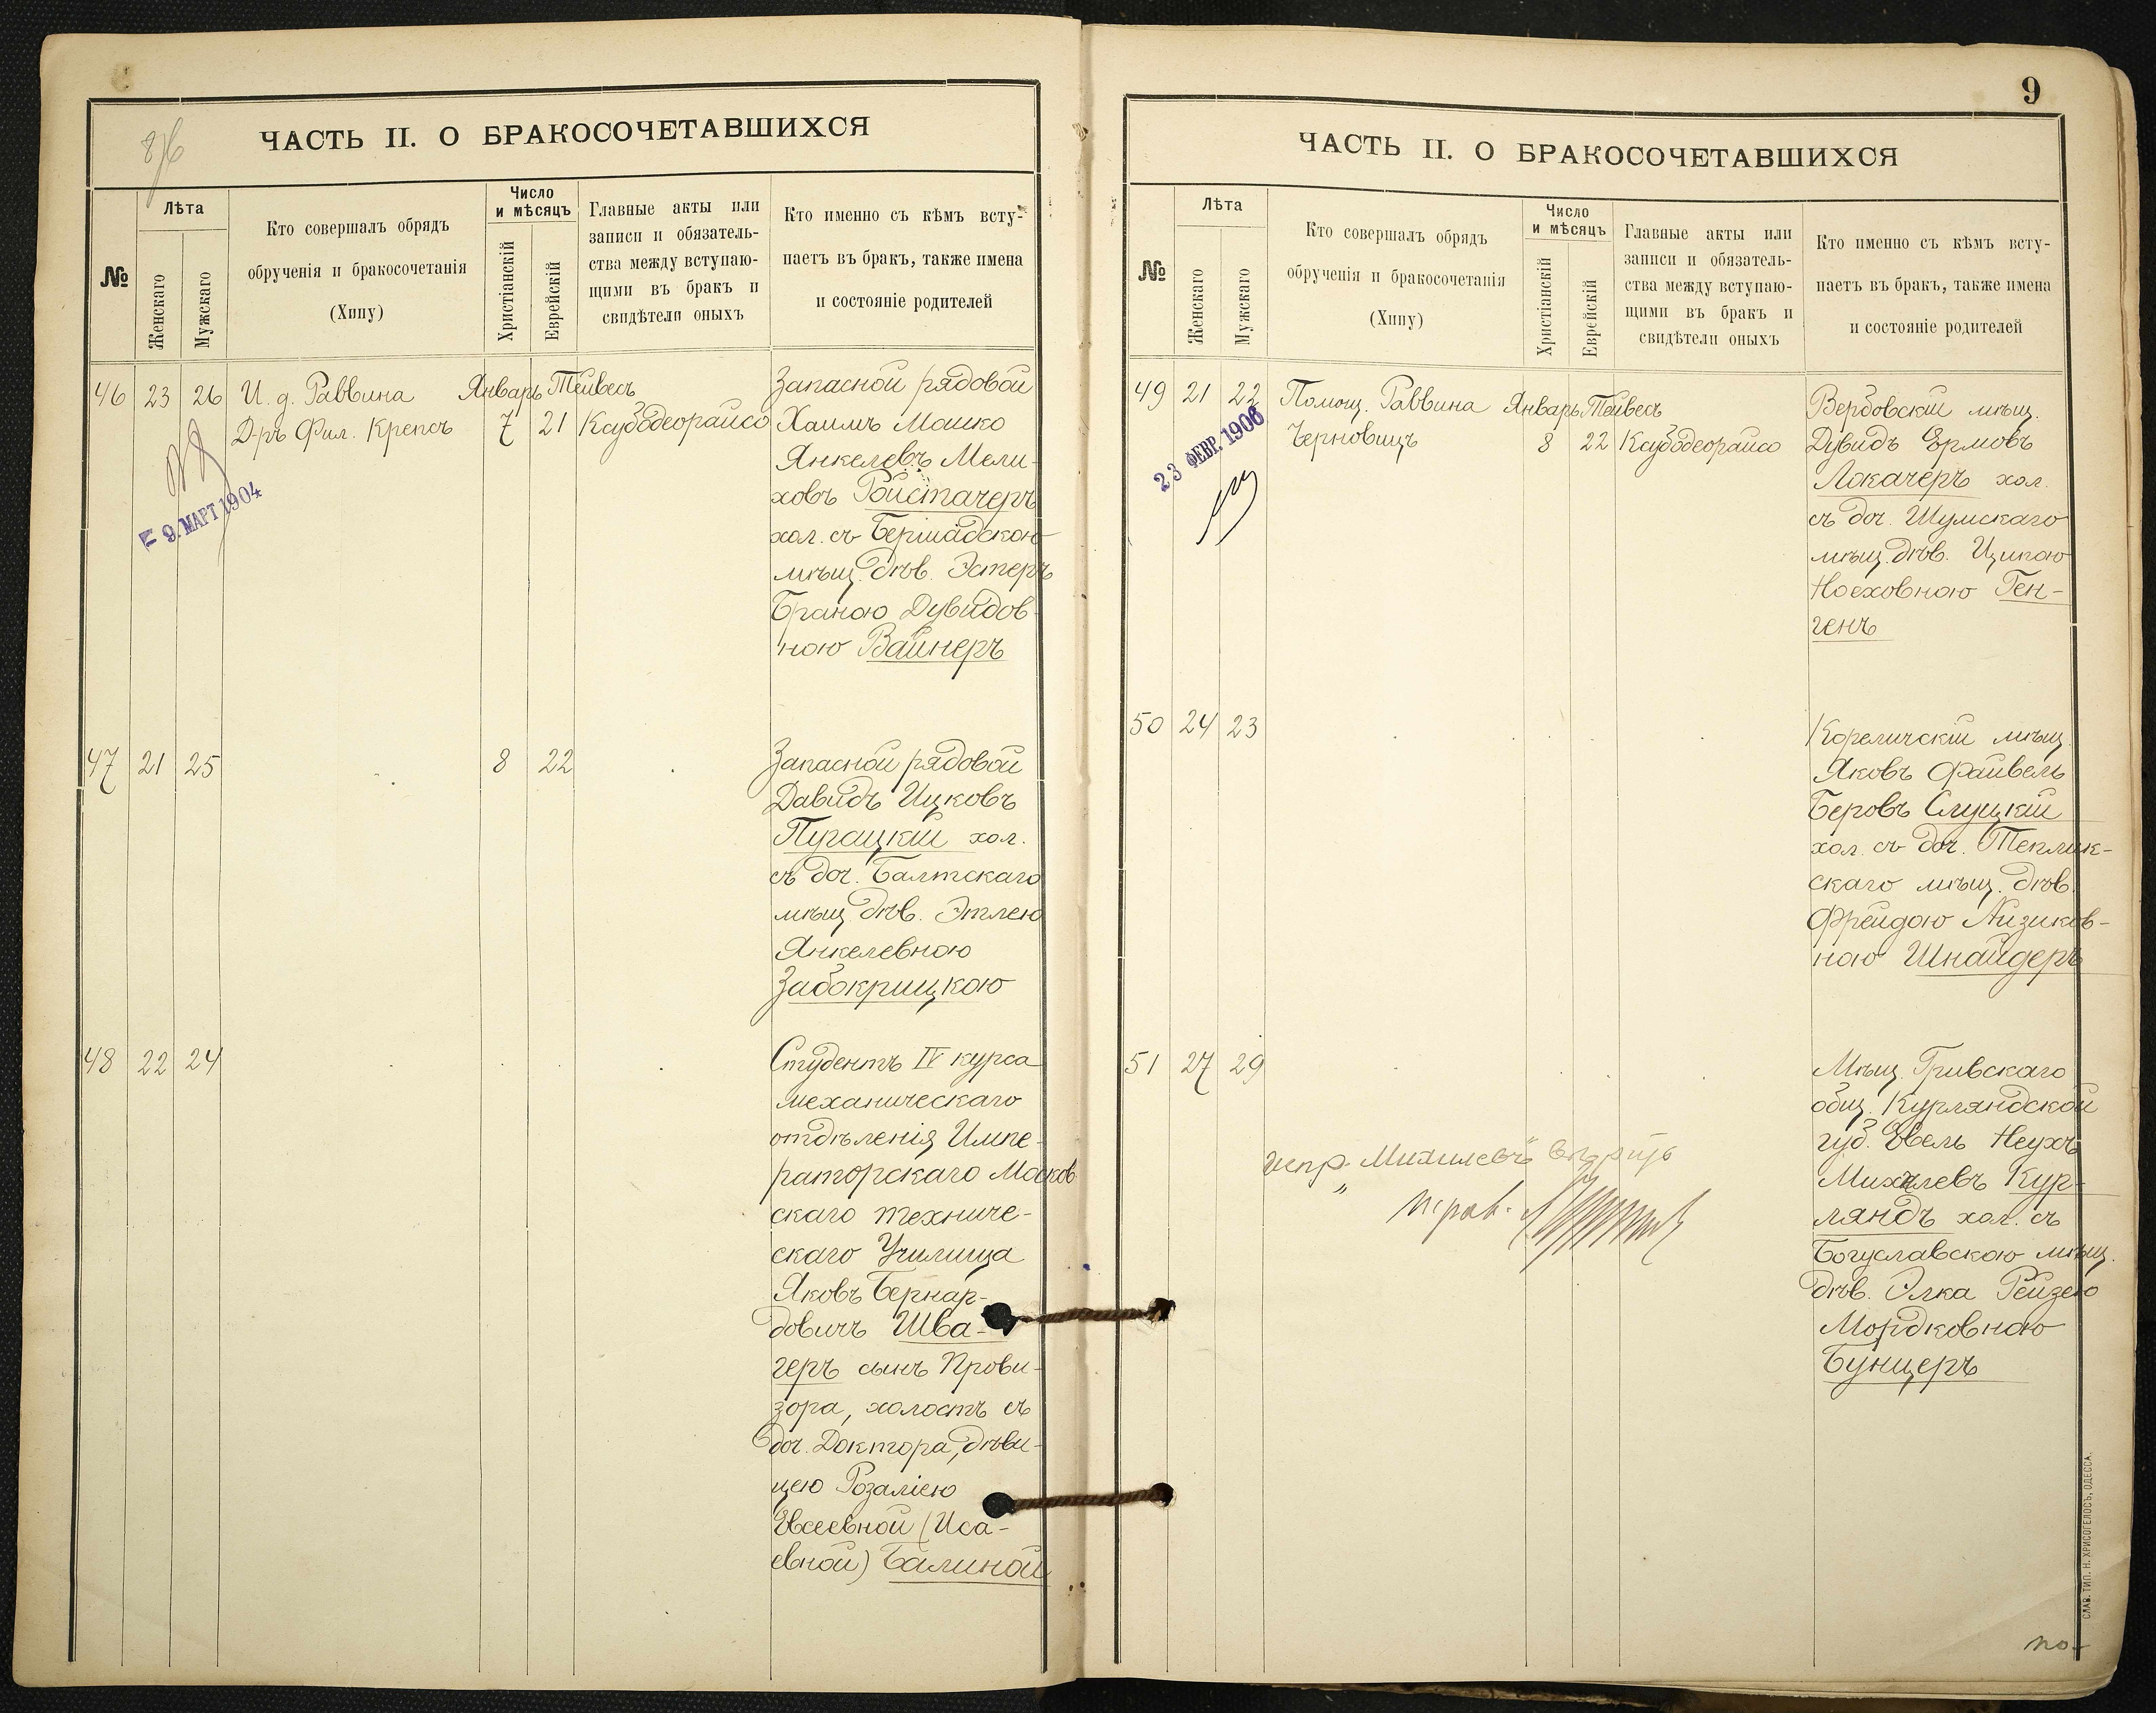 ЧАСТЬ II. О БРАКОСОЧЕТАВШИХСЯ
№
Лѣта
Женскаго
Мужскаго
Кто совершалъ обрядъ
обрученія и бракосочетанія
(Хипу)
Число
и мѣсяцъ
Христіанскій
Еврейскій
Главные акты или
записи и обязатель-
ства между вступаю-
щими въ бракъ и
свидѣтели оныхъ
Кто именно съ кѣмъ всту-
паетъ въ бракъ, также имена
и состояніе родителей
46 23 26 И. д. Раввина Январь Тейвесъ
Д-ръ Фил. Крепсъ 7 21 Каубдеорайсо
= 9. МАРТ 1904
Запасной рядовой
Хаимъ Мошко
Янкелевъ Мели-
ховъ Ройстачеръ
хол. съ Бершадскою
мѣщ. дѣв. Эстеръ
Браною Дувидов-
ною Вайнеръ
47 21 25 8 22
Запасной рядовой
Давидъ Ицковъ
Пурацкій хол.
съ доч. Балтскаго
мѣщ. дѣв. Этлею
Янкелевною
Забокрицкою
48 22 24
Студентъ IV курса
механическаго
отдѣленія Импе-
раторскаго Москов
скаго техниче-
скаго Училища
Яковъ Бернар-
довичъ Шва-
геръ сынъ Прови-
зора, холостъ съ
доч. Доктора, дѣви-
цею Розаліею
Евсеевной (Иса-
евной) Балиной
9
ЧАСТЬ II. О БРАКОСОЧЕТАВШИХСЯ
№
Лѣта
Женскаго
Мужскаго
Кто совершалъ обрядъ
обрученія и бракосочетанія
(Хипу)
Число
и мѣсяцъ
Христіанскій
Еврейскій
Главные акты или
записи и обязатель-
ства между вступаю-
щими въ бракъ и
свидѣтели оныхъ
Кто именно съ кѣмъ всту-
паетъ въ бракъ, также имена
и состояніе родителей
49 21 22 Помощ. Раввина Январь Тейвесъ
Черновицъ 8 22 Каубдеорайсо
23 ФЕВР. 1906
Вербовскій мѣщ.
Дувидъ Ермовъ
Локачеръ хол.
съ доч. Шумскаго
мѣщ. дѣв. Ципою
Ноеховною Ген-
генъ
50 24 23
Кореличскій мѣщ.
Яковъ Файвель
Беровъ Слуцкій
хол. съ доч. Теплик-
скаго мѣщ. дѣв.
Фрейдою Айзиков-
ною Шнайдеръ
51 27 29
Мѣщ. Гривскаго
общ. Курляндской
губ. Евель Неухъ
Михелевъ Кур-
ляндъ хол. съ
Богуславскою мѣщ.
дѣв. Элка Рейзею
Мордковною
Бунцеръ
испр. „Михилевъ“ вѣрить
СЛАВ. ТИП. Н. ХРИСОГЕЛОСЪ, ОДЕССА.
по-